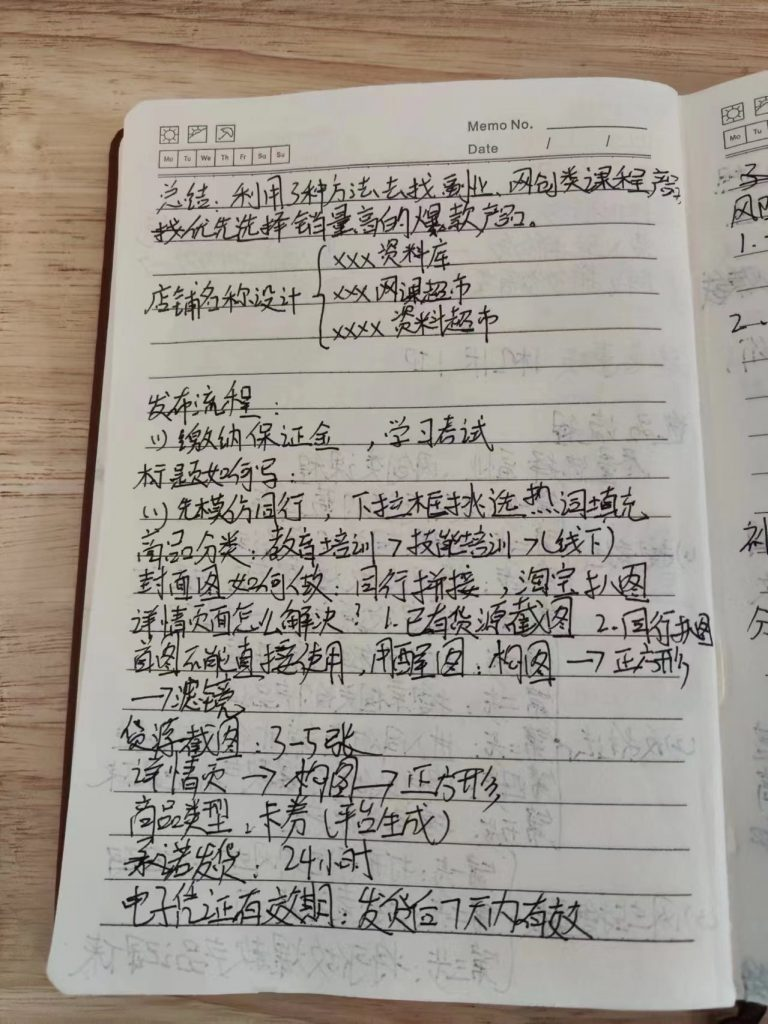 Memo No.
Date / /
Mo Tu We Th Fr Sa Su
总结：利用3种方法去找副业、网创类课程产品，
找优先选择销量高的爆款产品。
店铺名称设计
xxx资料库
xxx网课超市
xxxx资料超市
发布流程：
(1)缴纳保证金，学习考试
标题如何写：
(1)先模仿同行，下拉框挑选热词填充
商品分类：教育培训>技能培训>(线下)
封面图如何做：同行拼接，淘宝扒图
详情页面怎么解决？1.已有货源截图 2.同行扒图
首图不能直接使用，用醒图：构图→正方形
→滤镜
货源截图：3-5张
详情页→构图→正方形
商品类型：卡券(平台生成)
承诺发货：24小时
电子凭证有效期：发货后7天内有效
Mo Tu
1.
2.